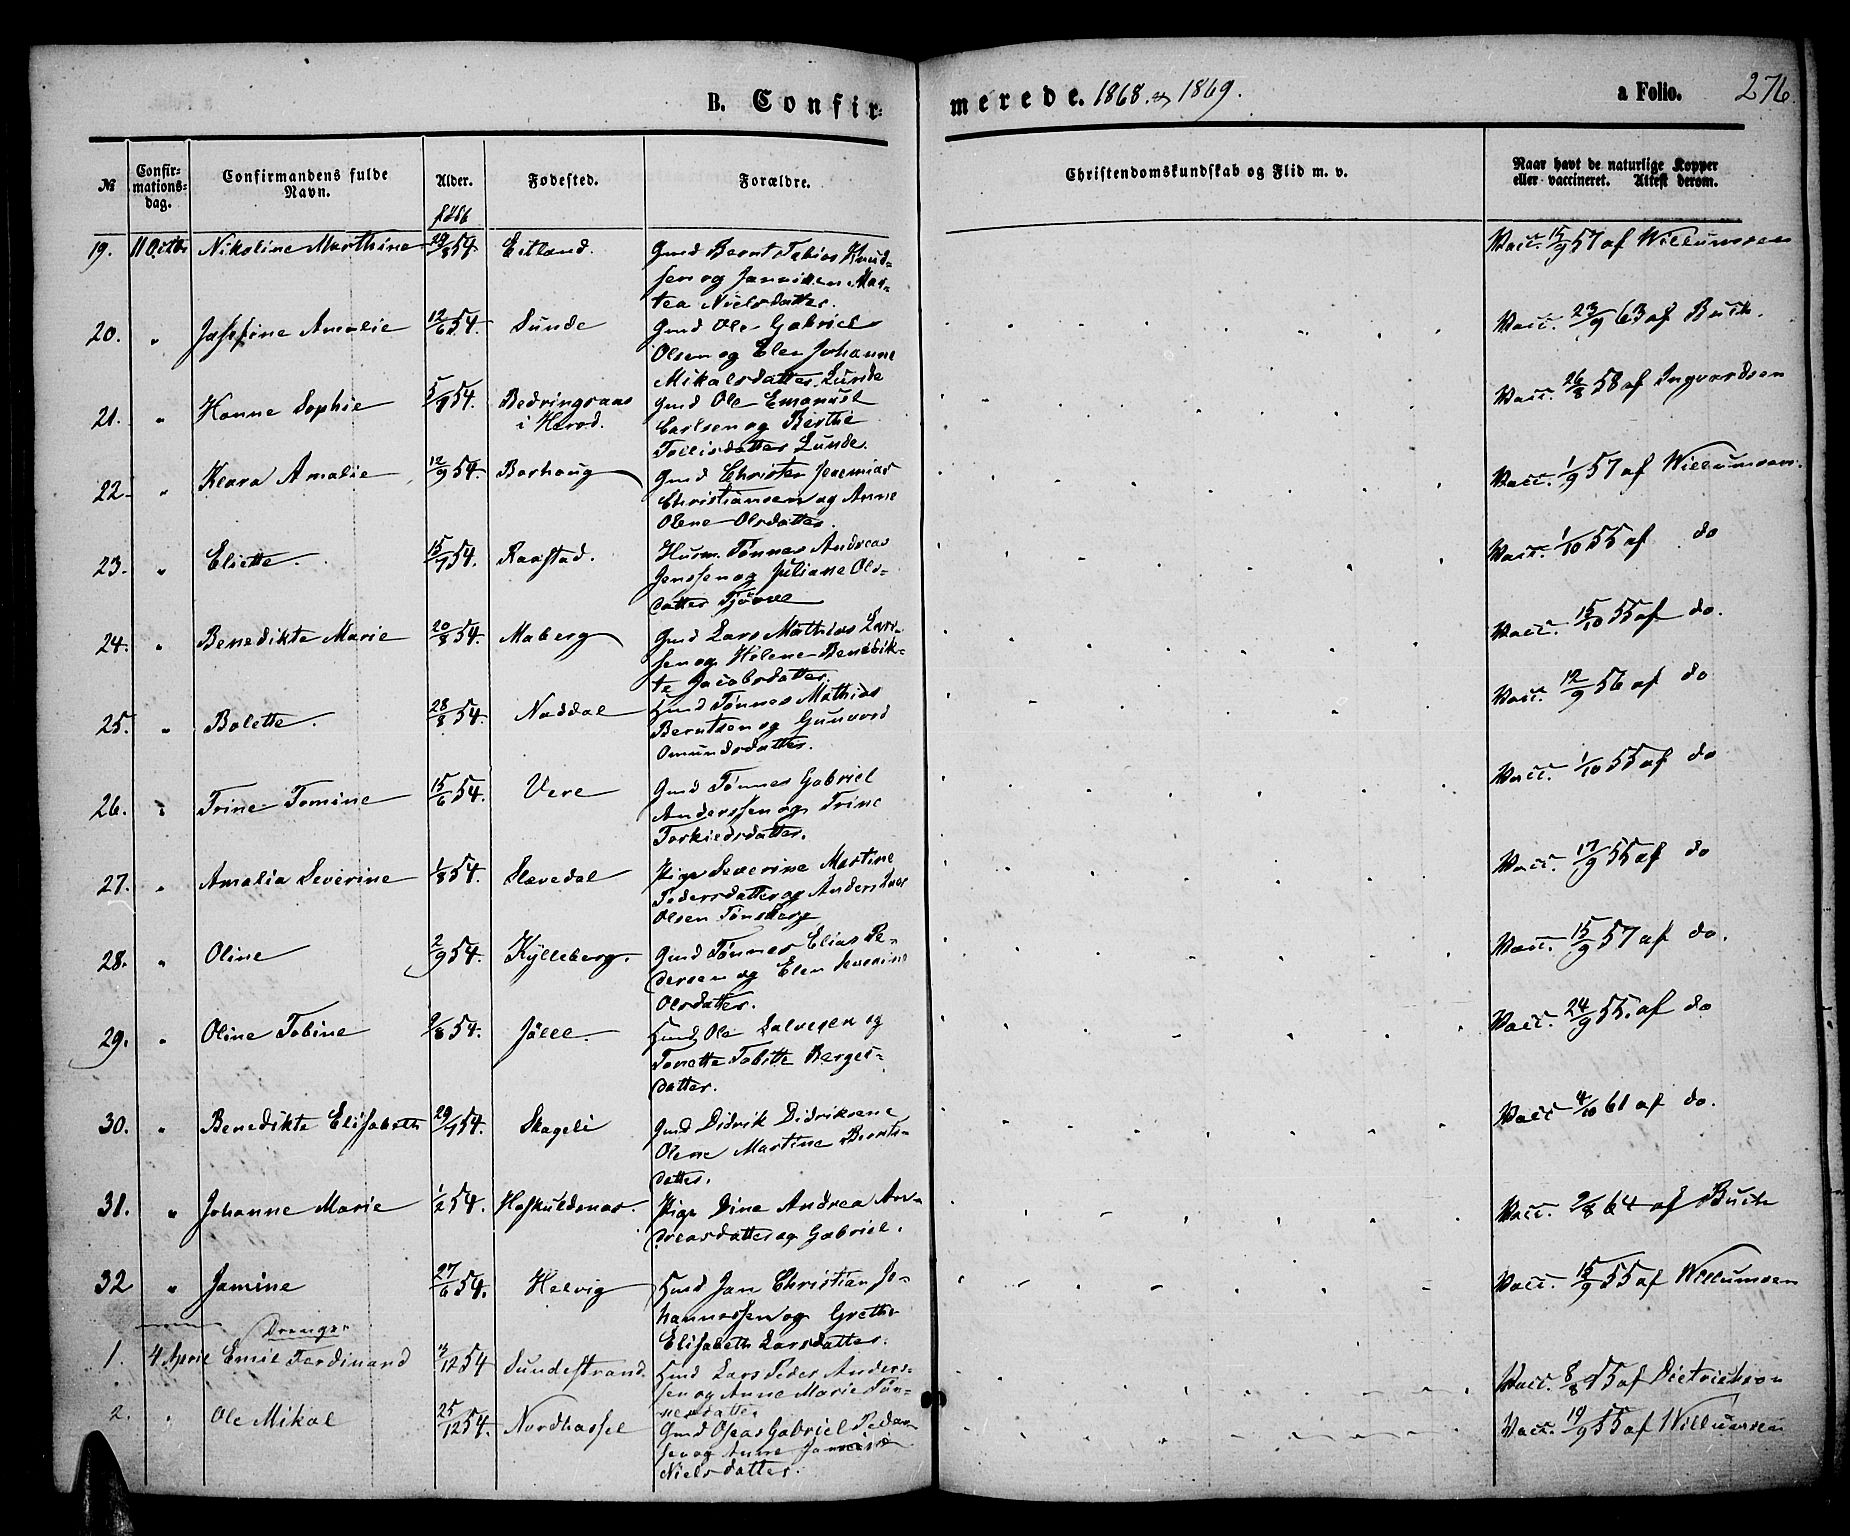 B. Confir-
merede. 1868 & 1869.
a Folio. 276.
№
Confir-
mations-
dag.
Confirmandens fulde
Navn.
Alder.
Fødested.
Forældre.
Christendomskundskab og Flid m. v.
Naar havt de naturlige Kopper
eller vaccineret. Attest derom.
født
19. 11 Octbr Nikoline Marthine 29/8 54. Eitland. Gmd Bernt Tobias Knud- Vacc. 15/9 57 af Willumsen
sen og Janniken Mar-
tea Nielsdatter.
20. " Josefine Amalie 12/6 54. Lunde Gmd Ole Gabriel Vacc. 23/9 63 af Buch.
Olsen og Elen Johanne
Mikalsdatter Lunde
21. " Hanne Sophie 5/9 54. Bedringsaas Gmd Ole Emanuel Vacc. 26/8 58 af Ingvardsen
i Herod. Carlsen og Berthe
Tollisdatter Lunde.
22. " Klara Amalie 12/9 54. Borhaug Gmd Christen Jeremias Vacc. 1/9 57 af Willumsen.
Christiansen og Anne
Olene Olsdatter.
23. " Eliette. 15/9 54. Raastad. Husm. Tønnes Andreas Vacc. 1/10 55 af do
Jenssen og Juliane Ols-
datter Tjørve
24. " Benedikte Marie 20/8 54. Maberg Gmd Lars Mathias Lar- Vacc. 15/10 55 af do.
sen og Helene Benedik-
te Jacobsdatter.
25. " Bolette. 28/8 54. Noddal Gmd Tønnes Mathias Vacc. 12/9 56 af do
Berntsen og Gunvord
Omundsdatter.
26. " Trine Tomine 15/6 54. Vere Gmd Tønnes Gabriel Vacc. 1/10 55 af do
Anderssen og Trine
Torkieldsdatter.
27. " Amalia Severine 1/8 54. Slevedal Pige Severine Martine Vacc. 17/9 55 af do
Pedersdatter og Anders
Olsen Tønsberg
28. " Oline 2/9 54. Kylleberg. Gmd Tønnes Elias Pe- Vacc. 15/9 57 af do.
dersen og Elen Severine
Olsdatter.
29. " Oline Tobine 9/8 54. Jølle. Gmd Ole Salvesen og Vacc. 24/9 55. af do
Tonette Tobitte Berges-
datter.
30. " Benedikte Elisabeth 29/9 54. Skageli Gmd Didrik Didriksen Vacc 4/10 61 af do.
Olene Martine Bernts-
datter.
31. " Johanne Marie 1/2 54. Høskuldsnes. Pige Dina Andrea An- Vacc. 9/8 64 af Buch
dreasdatter og Gabriel.
32 " Jamine 27/6 54. Helvig Gmd Jan Christian Jo- Vacc. 15/9 55 af Willumsen
hannessen og Grethe
Elisabeth Larsdatter.
Drenge
1. 4 April Emil Ferdinand /12 54 Sundestrand. Gmd Lars Peder Anders- Vacc. 8/8 55 af Dietrichson
sen og Anne Marie Tøn-
nesdatter
2. " Ole Mikal 25/12 54. Nordhassel Gmd Oseas Gabriel Peder- Vacc. 19/9 55 af Willumsen
sen og Anne
Nielsdatter.